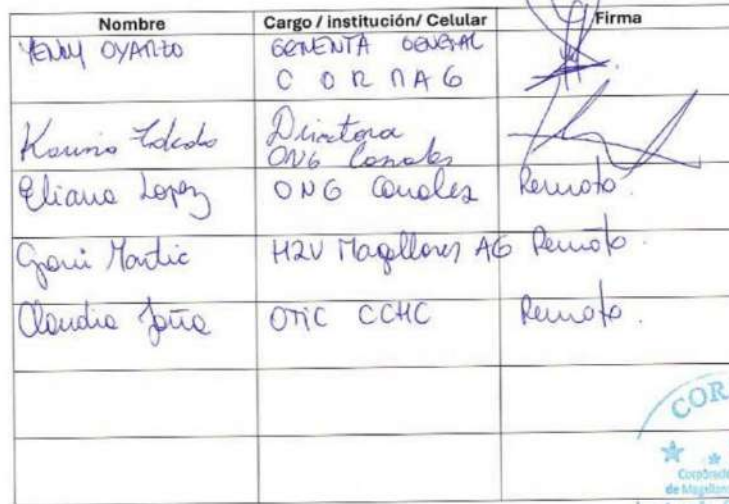 Nombre Cargo / institución/ Celular Firma
YENNY OYARZO GERENTA GENERAL
CORMAG
Karina Toledo Directora
ONG Canales
Eliana Lopez ONG Canales Remoto.
Martic H2V Magallanes AG Remoto.
Claudia OTIC CCHC Remoto.
COR
Corporació
de Magallan